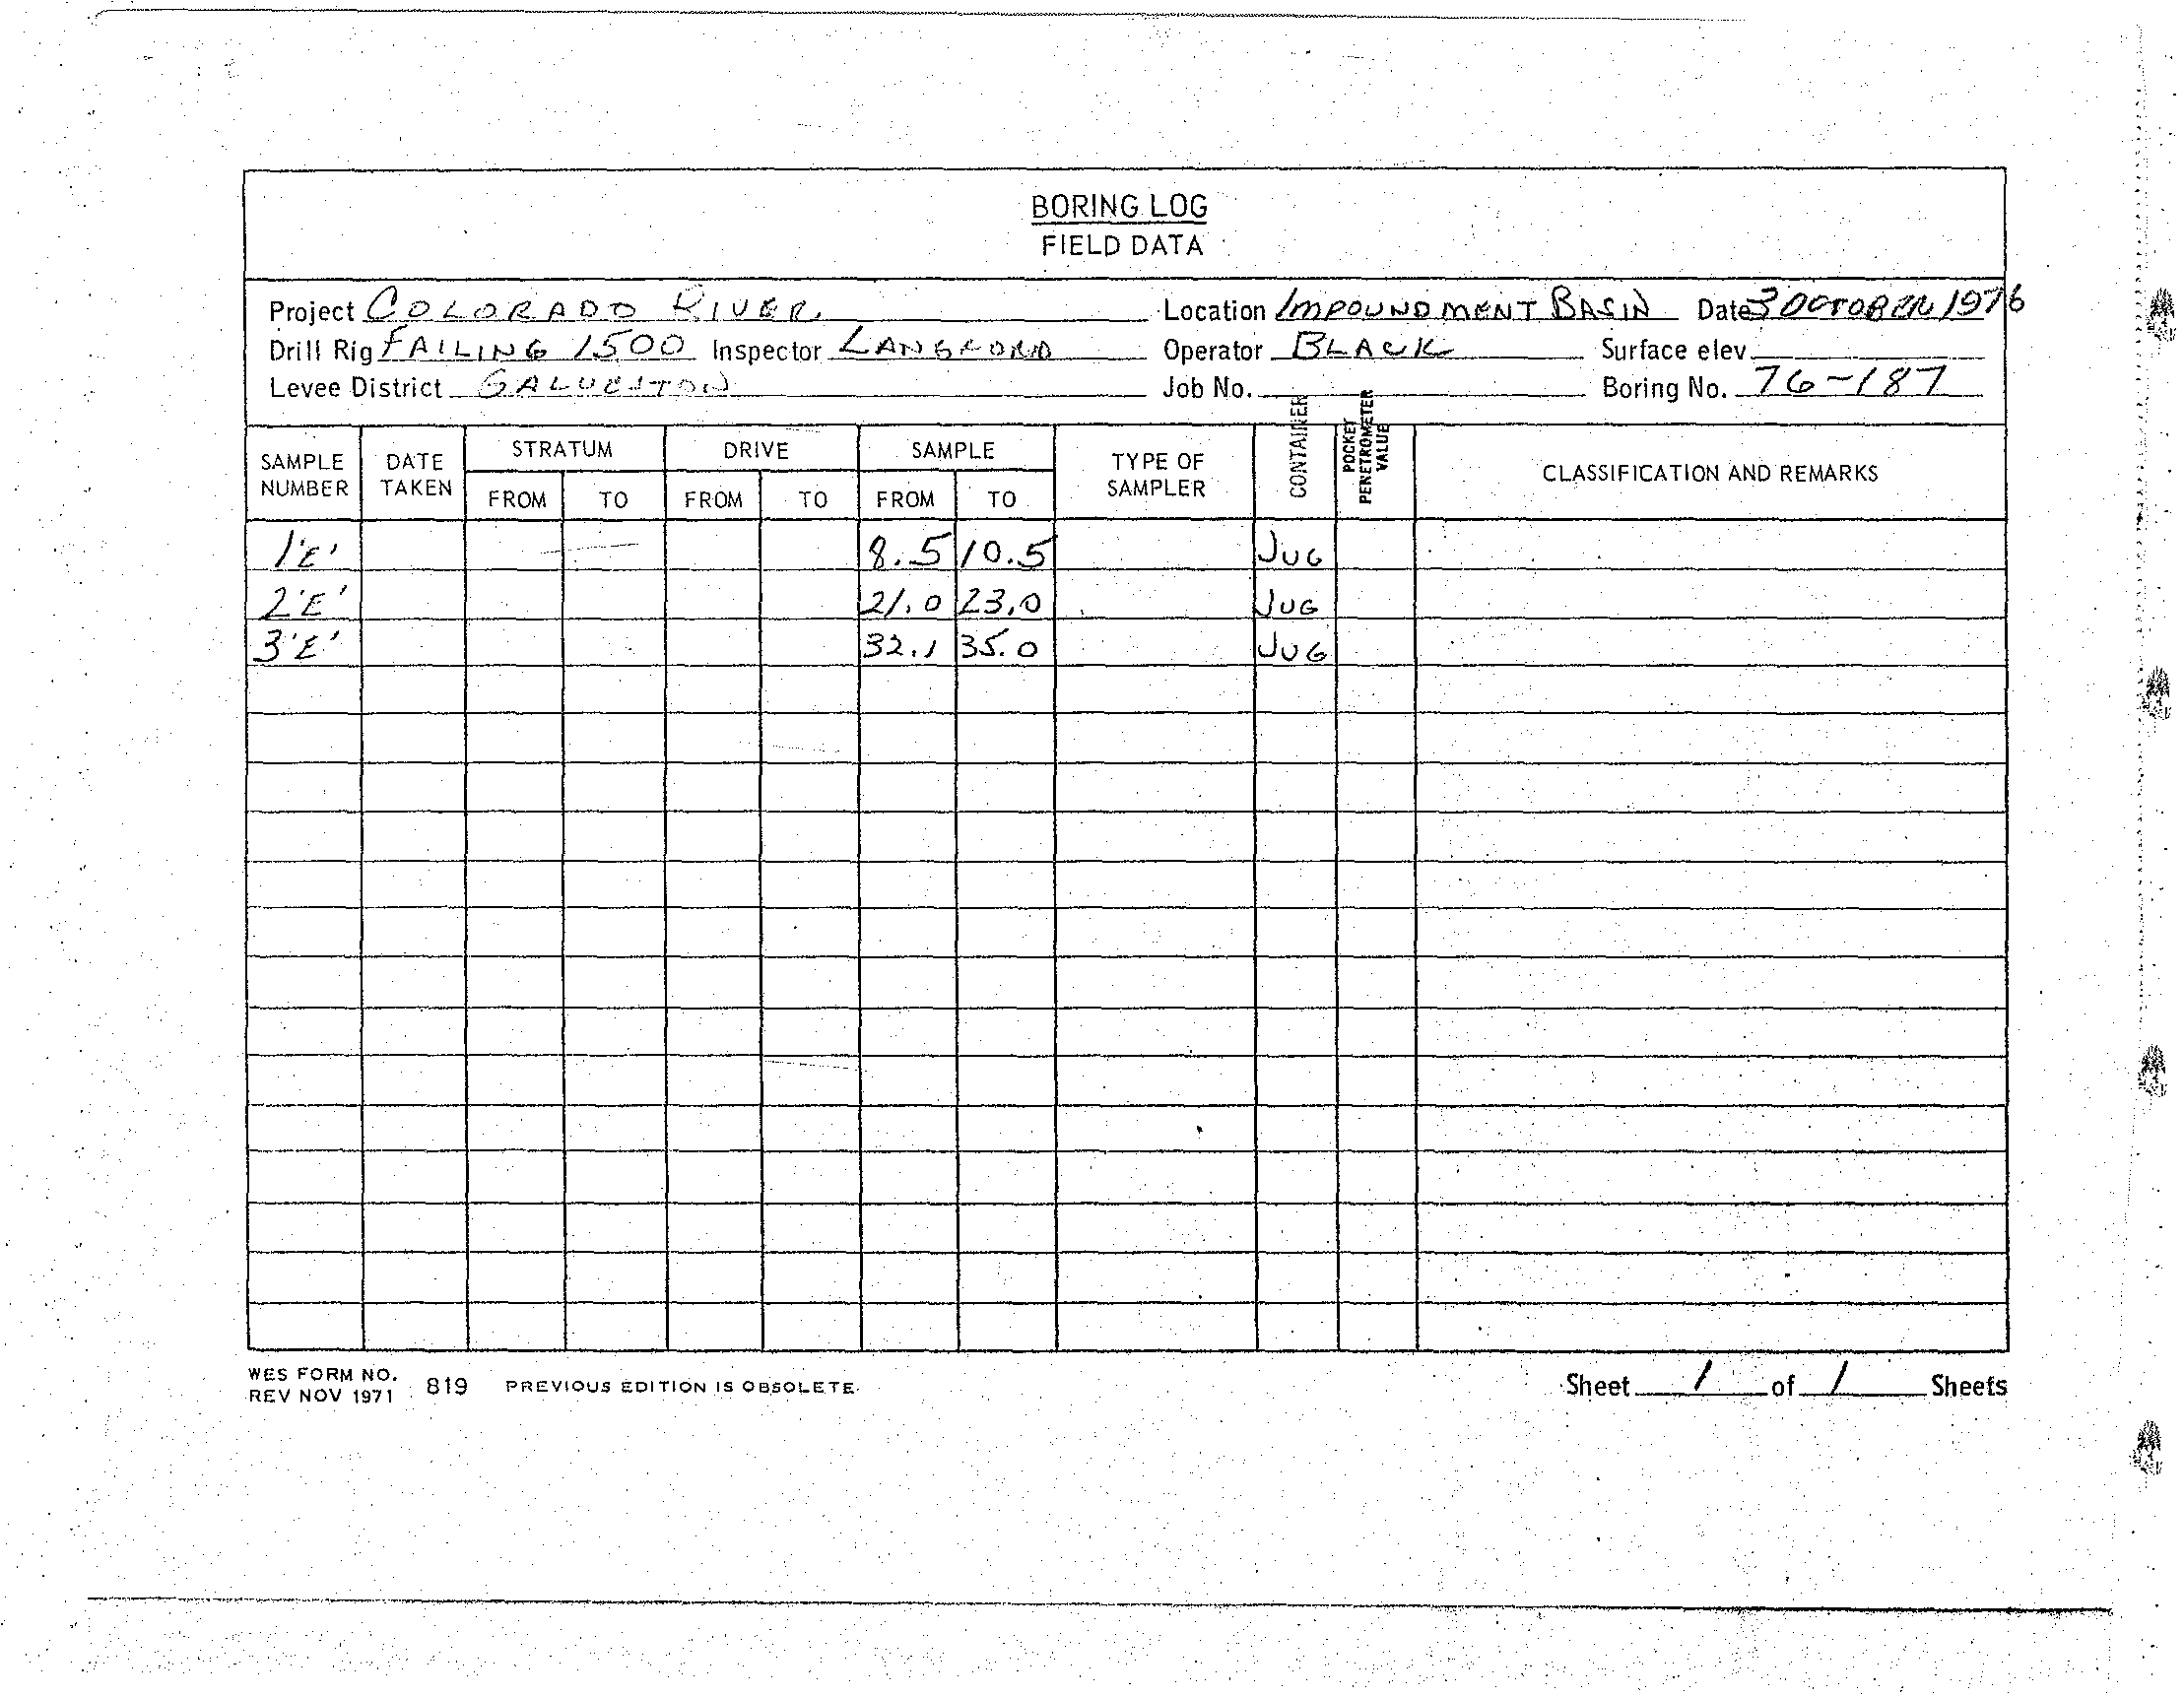 BORING LOG
FIELD DATA
Project COLORADO RIVER Location IMPOUNDMENT BASIN Date 3 OCTOBER 1976
Drill Rig FAILING 1500 Inspector LANGFORD Operator BLACK Surface elev.
Levee District GALVESTON Job No. Boring No. 76-187
SAMPLE NUMBER DATE TAKEN STRATUM FROM TO DRIVE FROM TO SAMPLE FROM TO TYPE OF SAMPLER CONTAINER POCKET PENETROMETER VALUE CLASSIFICATION AND REMARKS
1'E' 8.5 10.5 JUG
2'E' 21.0 23.0 JUG
3'E' 32.1 35.0 JUG
WES FORM NO. 819 PREVIOUS EDITION IS OBSOLETE. Sheet 1 of 1 Sheets
REV NOV 1971